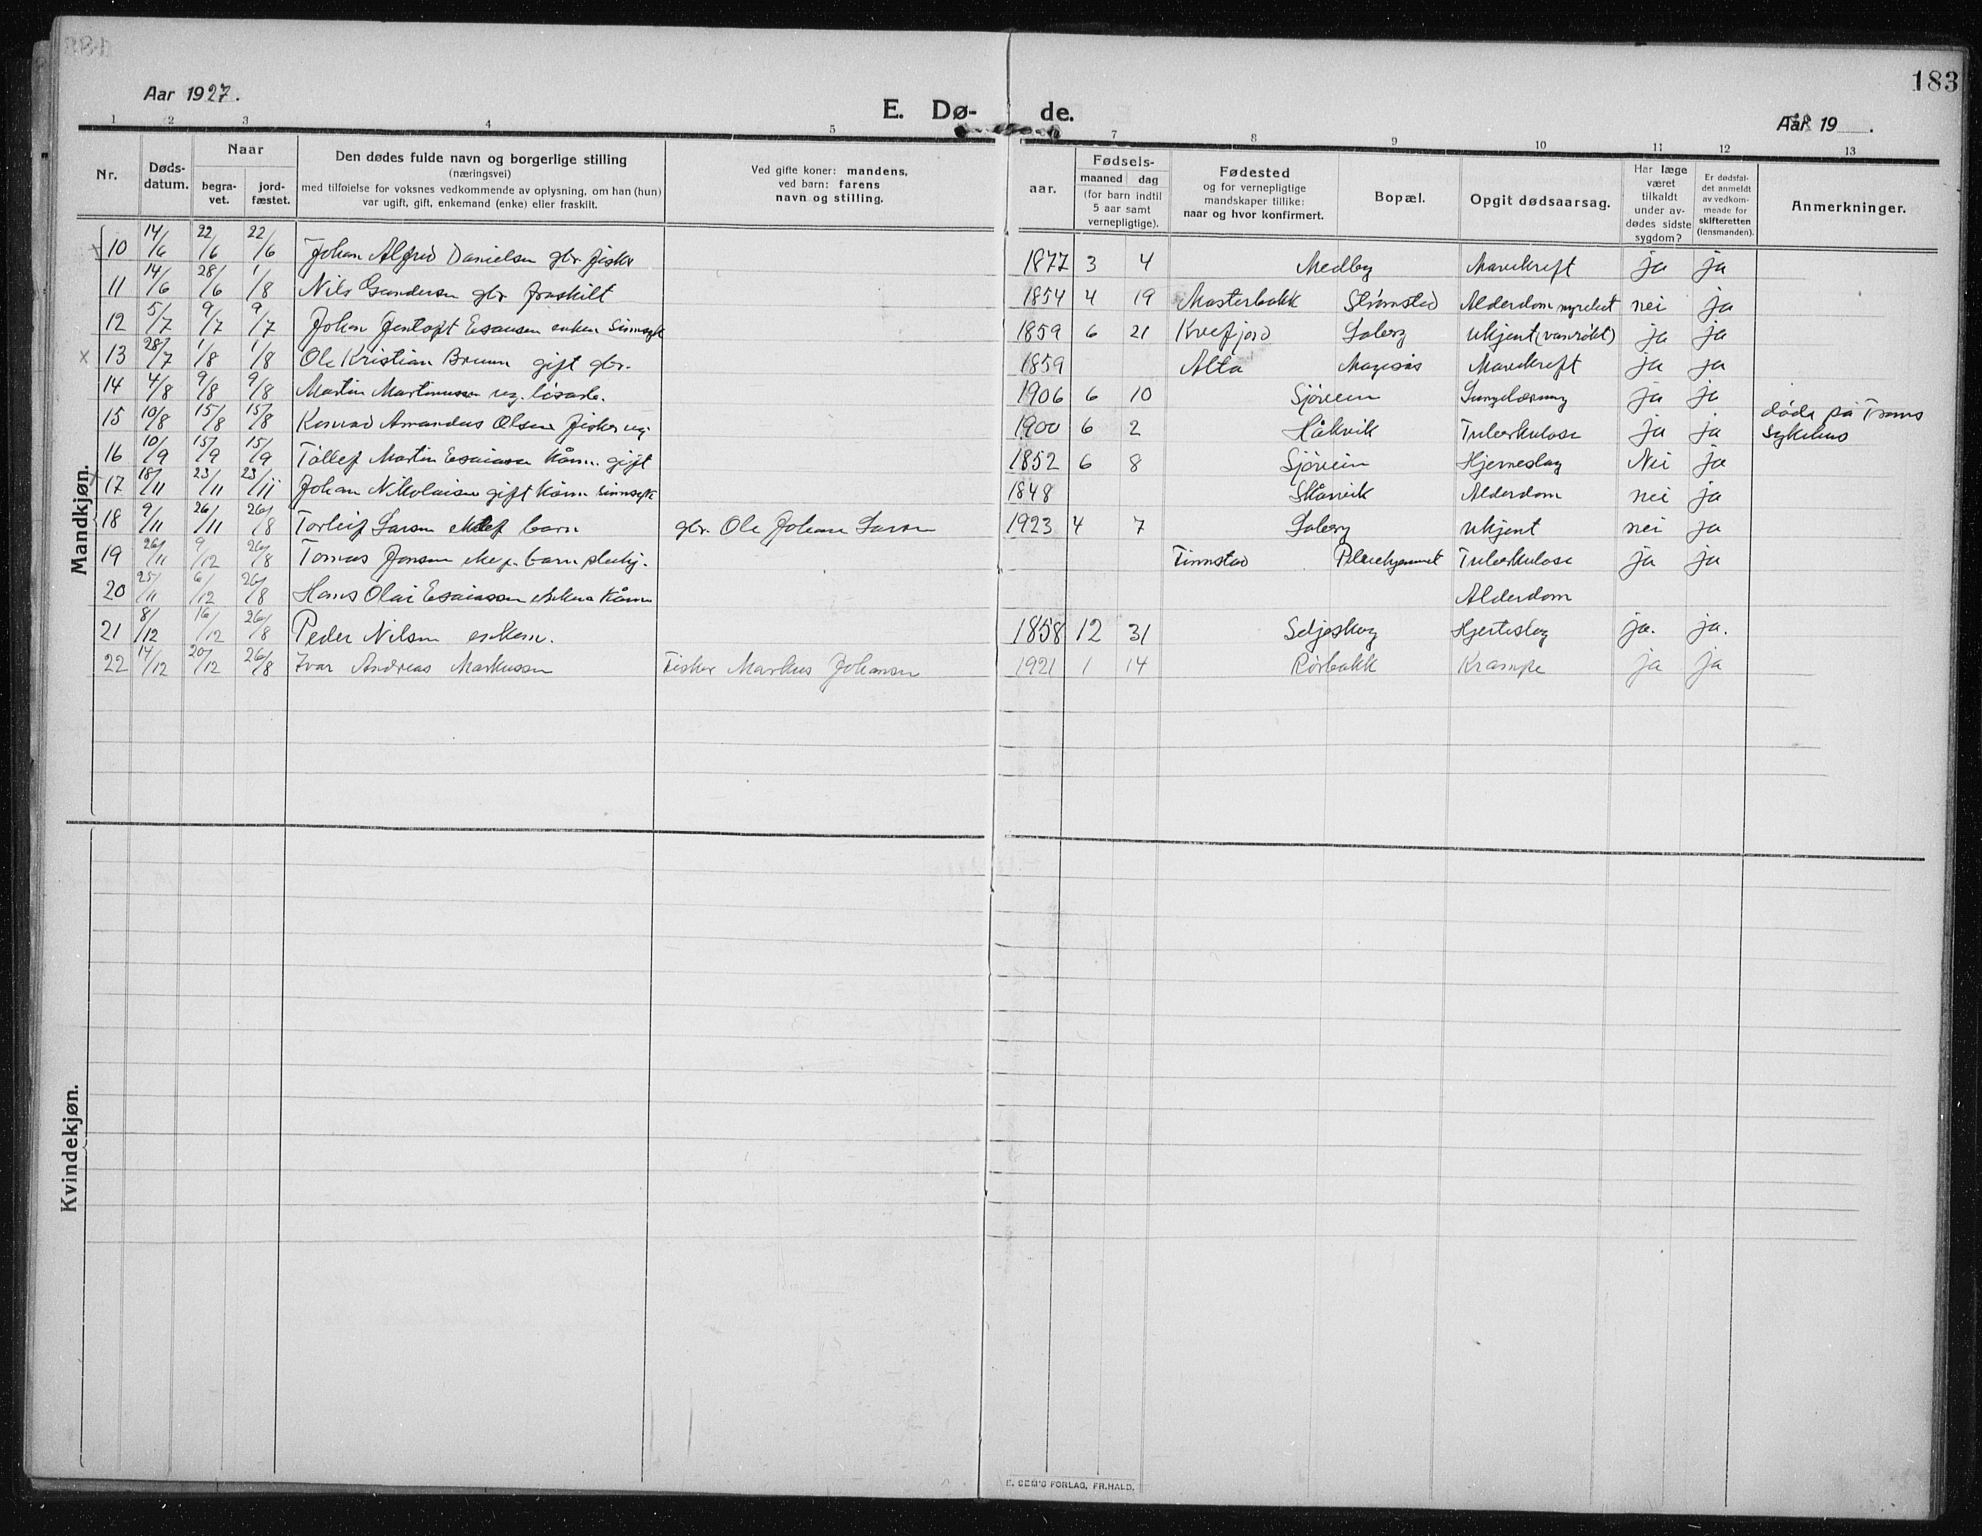 183
Aar 1927.
E. Dø- de.
Aar 19 .
1 2 3 4 5 7 8 9 10 11 12 13
Nr.
Døds-
datum.
Naar
begra-
vet.
jord-
fæstet.
Den dødes fulde navn og borgerlige stilling
(næringsvei)
med tilføielse for voksnes vedkommende av oplysning, om han (hun)
var ugift, gift, enkemand (enke) eller fraskilt.
Ved gifte koner: mandens,
ved barn: farens
navn og stilling.
aar.
Fødsels-
maaned dag
(for barn indtil
5 aar samt
vernepligtige).
Fødested
og for vernepligtige
mandskaper tillike:
naar og hvor konfirmert.
Bopæl.
Opgit dødsaarsag.
Har læge
været
tilkaldt
under av-
dødes sidste
sygdom?
Er dødsfal-
det anmeldt
av vedkom-
mende for
skifteretten
(lensmanden).
Anmerkninger.
Mandkjøn.
10 14/6 22/6 22/6 Johan Alfred Danielsen gbr. fisker 1877 3 4 Medby Mavekreft ja ja
11 14/6 28/6 1/8 Nils Gundersen gbr fraskilt 1854 4 19 Strømstad Alderdom nei ja
12 5/7 9/7 9/7 Johan Esausen 1859 6 21 Kvefjord ukjent ja ja
x 13 28/7 1/8 1/8 Ole Kristian Bruun gift gbr. 1859 Alta Mavekreft ja ja
14 4/8 9/8 9/8 Martin Martinussen ug. løsarb. 1906 6 10 Sjøreien ja ja
15 10/8 15/8 15/8 Konrad Amandus Olsen fisker ug. 1900 6 2 Håkvik Tuberkulose ja ja døde på Troms
Sykehus
16 10/9 15/9 15/9 Tollef Martin Esaiassen kårm. gift 1852 6 8 Sjøreien Hjerneslag Nei ja
17 18/11 23/11 23/11 Johan Nikolaisen gift kårm sinnsyk 1848 Skårvik Alderdom nei ja
18 9/11 26/11 26/8 Torleif Larsen barn gbr. Ole Johan Larsen 1923 4 7 ukjent nei ja
19 26/11 9/12 26/8 Tomas Jensen barn Finnstad Pleiehjemmet Tuberkulose ja ja
20 25/11 6/12 26/8 Hans Olai Esaiassen Alderdom
21 8/12 16/12 26/8 Peder Nilsen enkem. 1858 12 31 Seljeskog Hjerteslag ja. ja.
22 14/12 20/12 26/8 Ivar Andreas Markussen Fisker Markus Johansen 1921 1 14 Rørbakk Krampe ja ja
Kvindekjøn.
E. SEM'S FORLAG, FR.HALD.